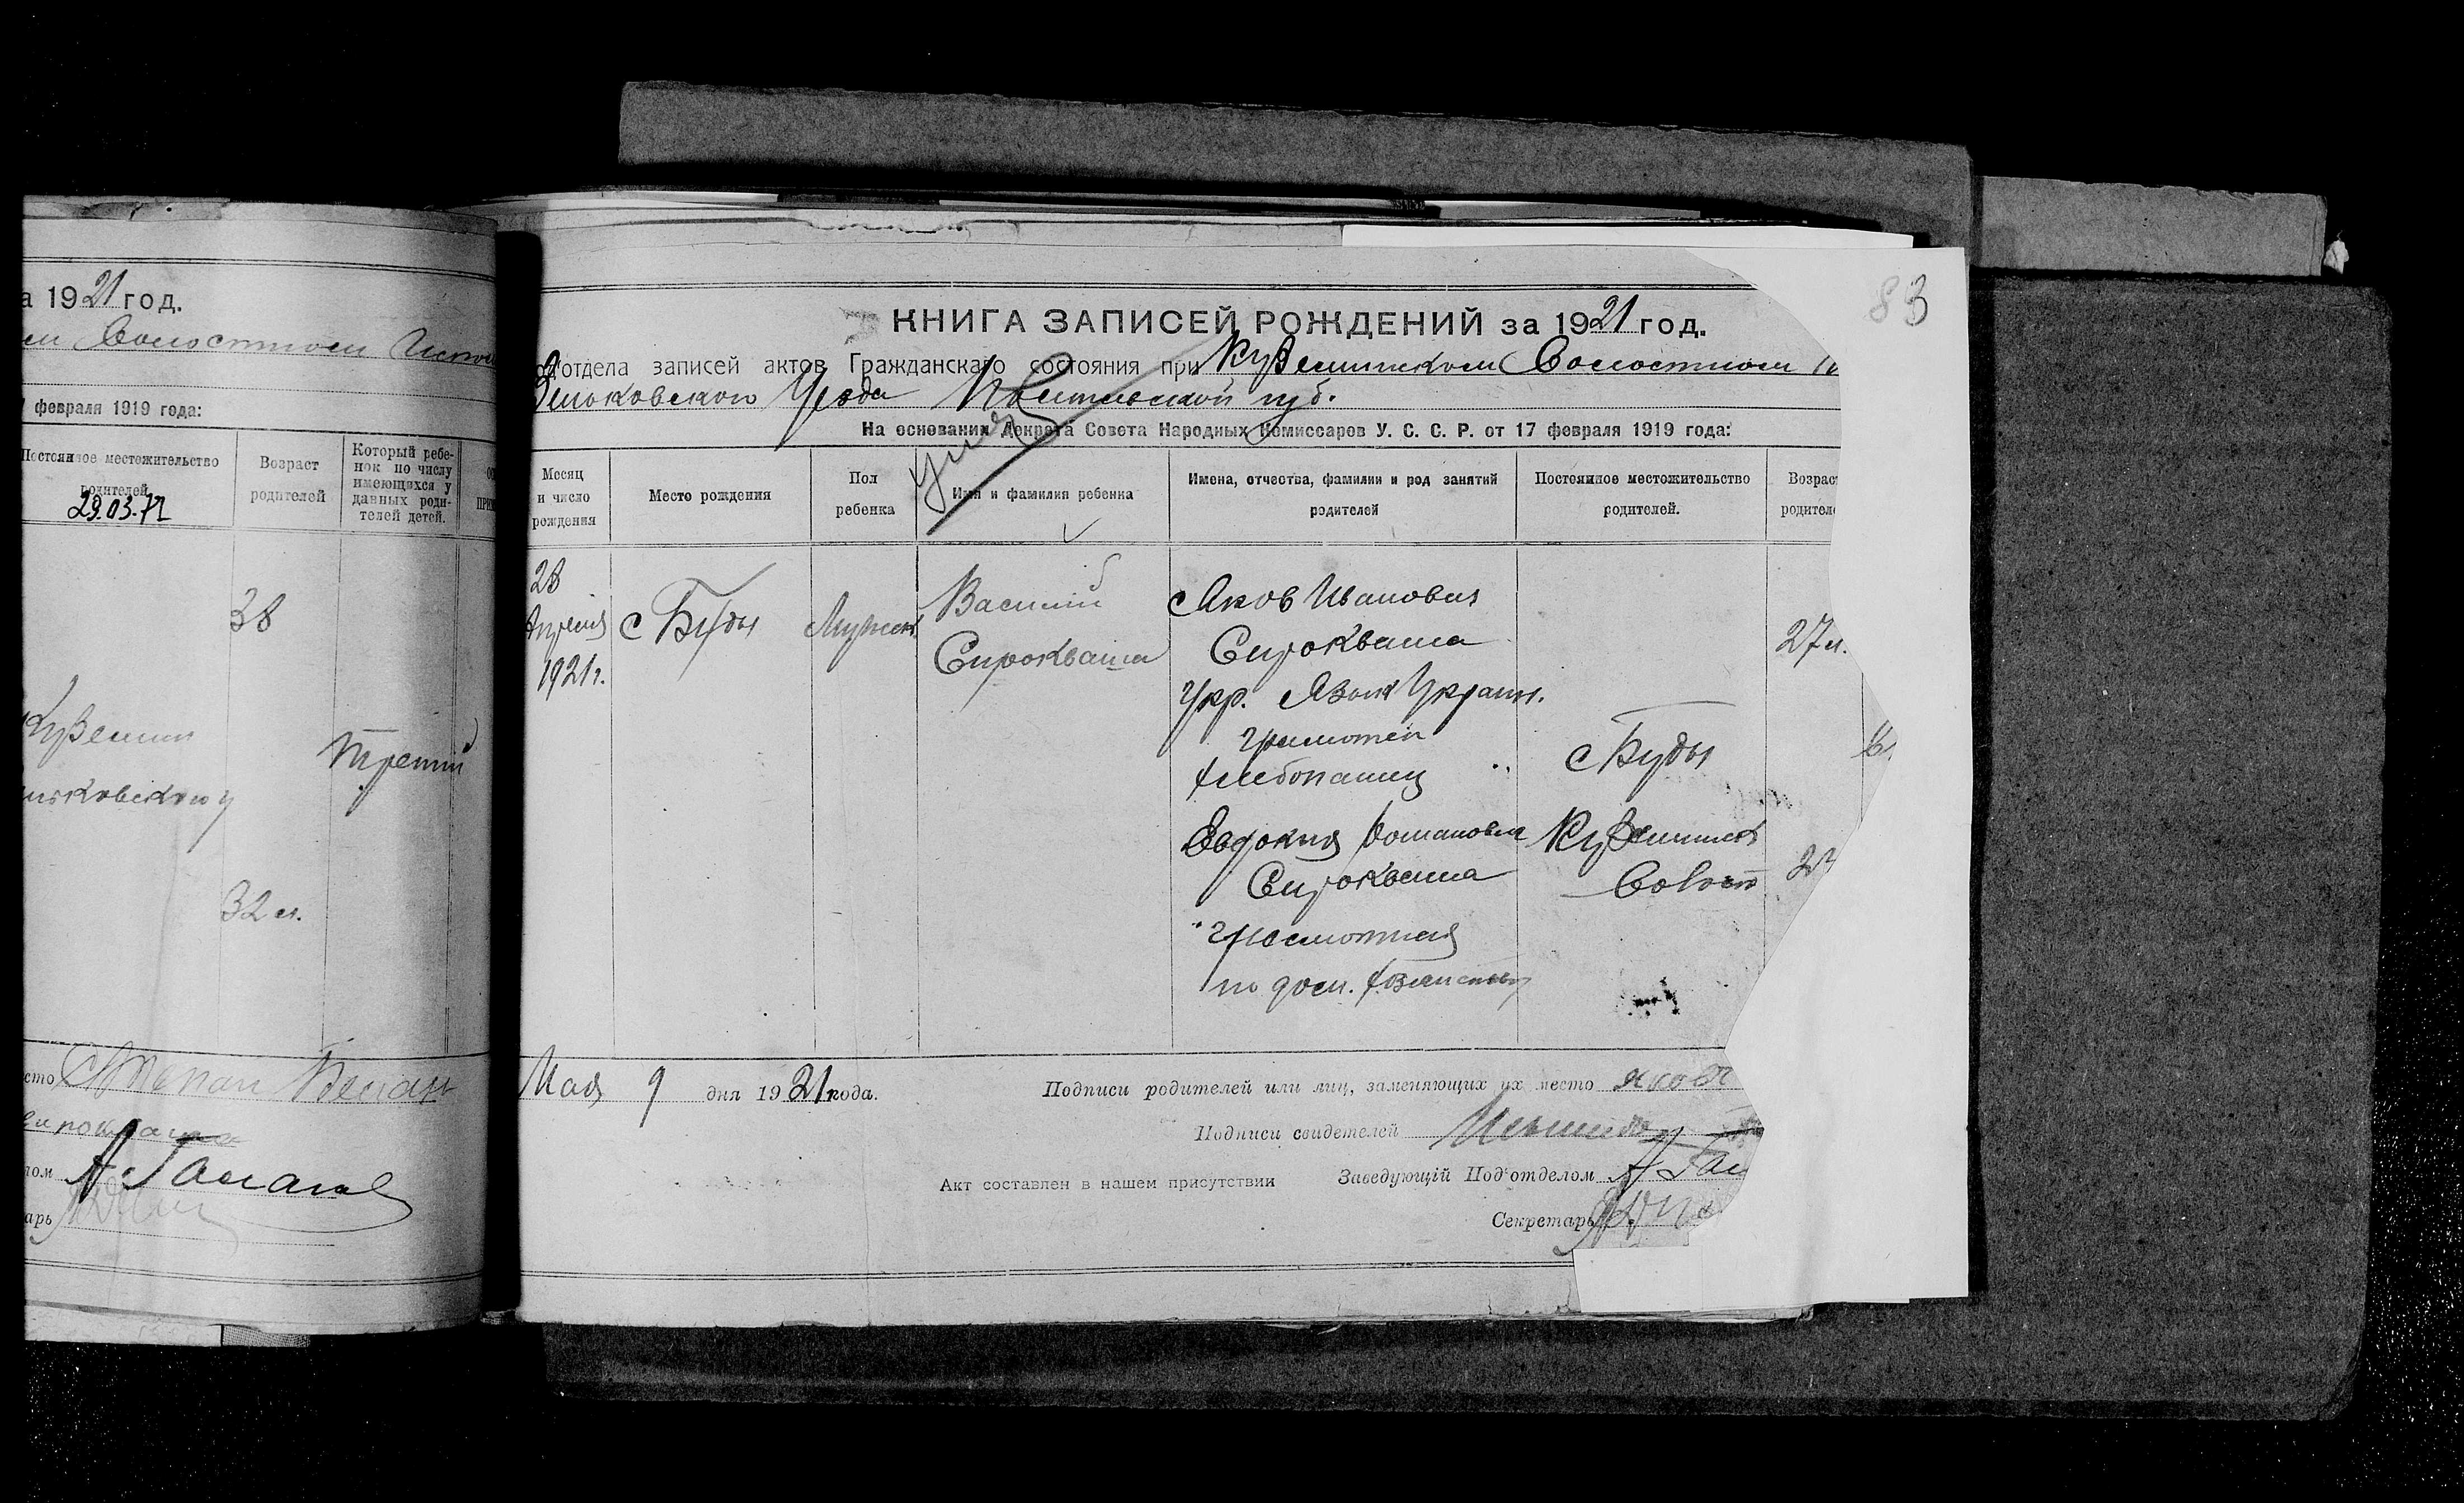 а 1921 год.
Волостном
февраля 1919 года:
Постоянное местожительство родителей
29.03.72
Возраст родителей
Который ребенок по числу имеющихся у данных родителей детей.
38
Куземин
третий
32 л.
сто Степан
А. Гапанов
арь
83
КНИГА ЗАПИСЕЙ РОЖДЕНИЙ за 1921 год.
Подотдела записей актов Гражданскаго состояния при Куземинском Волостном
Зеньковского Уезда Полтавской губ.
умер
На основании Декрета Совета Народных Комиссаров У. С. С. Р. от 17 февраля 1919 года:
Месяц и число рождения
Место рождения
Пол ребенка
Имя и фамилия ребенка
Имена, отчества, фамилии и род занятий родителей
Постоянное местожительство родителей.
Возраст родителе
28
Апреля
1921 г.
с Буды
Мужск
Василий
Сироквашa
Яков Иванович
Сироквашa
Укр. Язык Украин.
грамотен
хлебопашец
Евдокия Романовна
Сироквашa
грамотная
по дом. хозяйству
с Буды
Куземинск
Волост
27 л.
Мая 9 дня 1921 года.
Подписи родителей или лиц, заменяющих их место Яков
Подписи свидетелей
Акт составлен в нашем присутствии
Заведующій Под'отделом А Гап
Секретарь